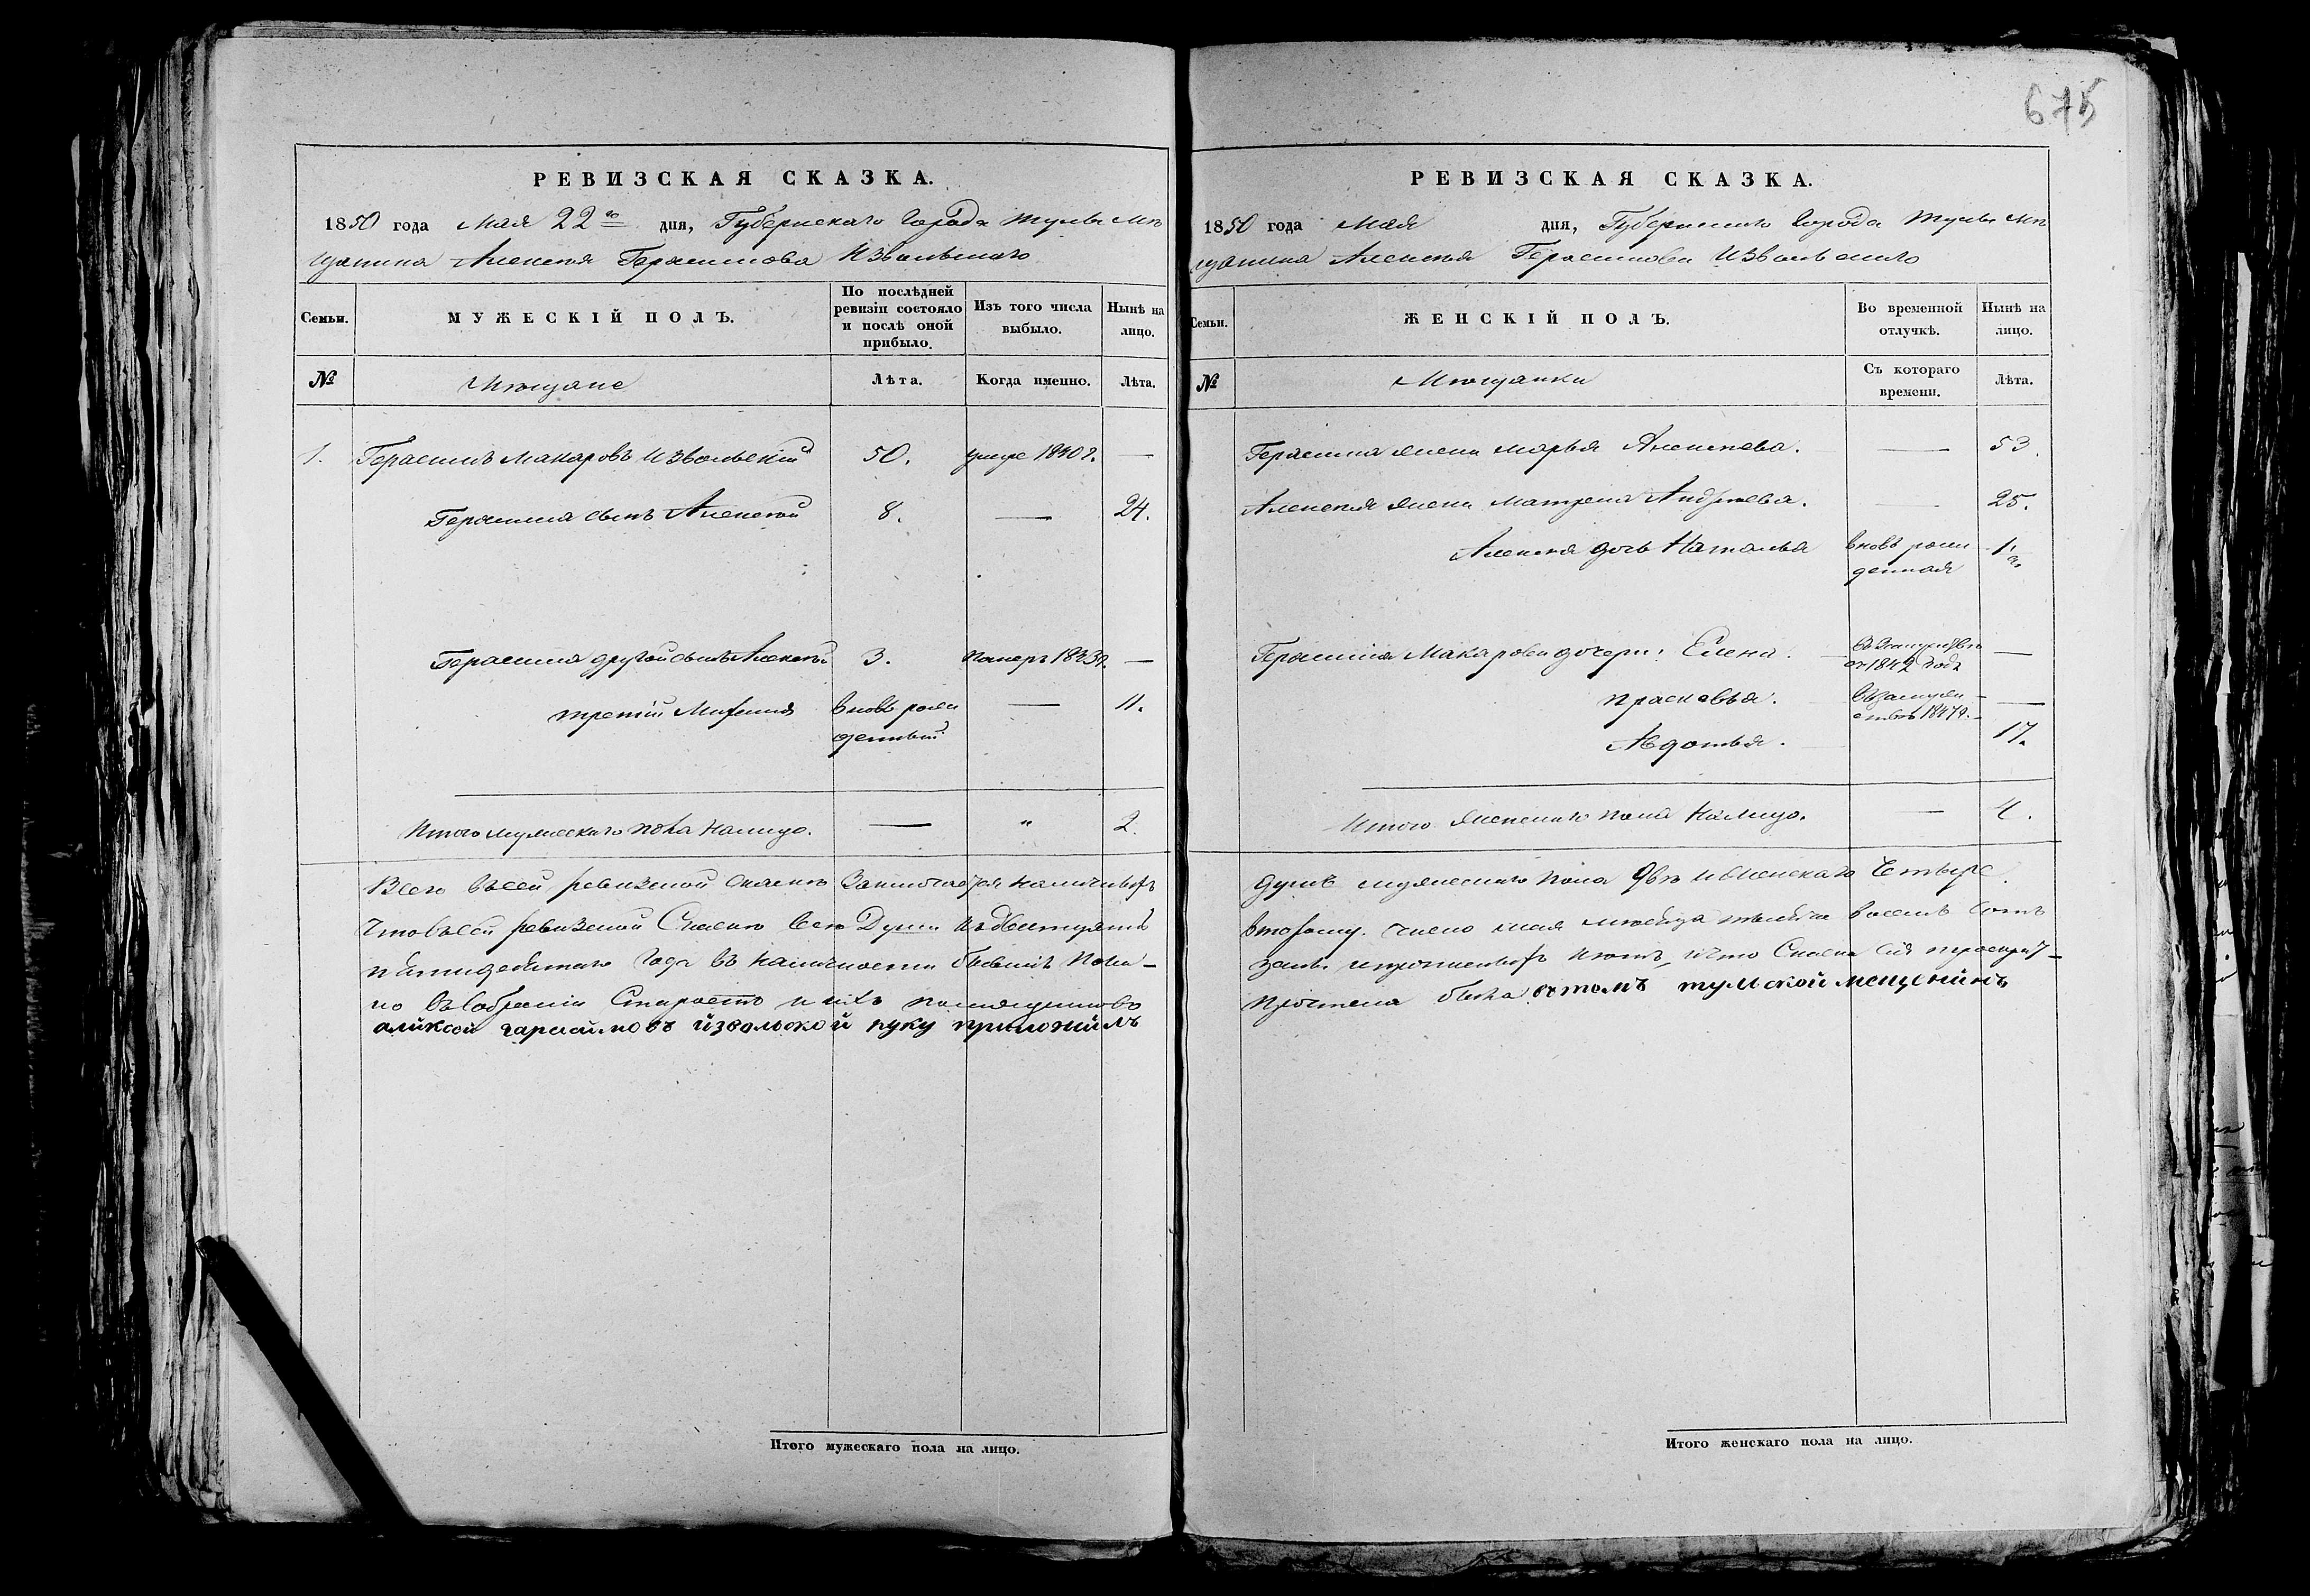 675
РЕВИЗСКАЯ СКАЗКА.
1850 года Мая 22го дня, Губернскаго города Тулы мѣ
щанина Алексѣя Герасимова Извольскаго
Семьи.
МУЖЕСКІЙ ПОЛЪ.
По послѣдней ревизіи состояло и послѣ оной прибыло.
Изъ того числа выбыло.
Нынѣ на лицо.
№
Мѣщане
Лѣта.
Когда именно.
Лѣта.
1. Герасимъ Макаровъ Извольскій 50. умре 1840 г. —
Герасима сынъ Алексѣй 8. — 24.
Герасима другой сынъ Алексѣй 3. померъ 1843 г. —
третій вновь рож — 11.
денный
Итого мужескаго пола налицо. — " 2.
Всего въ сей ревизской скаскѣ заключается наличныхъ
что въ сей ревизской Скаскѣ все Души къ двадцать
пятидесятаго года въ наличности бывшія пока-
но въ собраніи
алйксей гарасимовъ йзвольской руку приложйлъ
Итого мужескаго пола на лицо.
РЕВИЗСКАЯ СКАЗКА.
1850 года Мая дня, Губернскаго города Тулы мѣ
щанина Алексѣя Герасимова Извольскаго
Семьи.
ЖЕНСКІЙ ПОЛЪ.
Во временной отлучкѣ.
Нынѣ на лицо.
№
Мѣщанки
Съ котораго времени.
Лѣта.
Герасима жена Марья Алексѣева. — 53.
Алексѣя жена Матрена Андреева. — 25.
Алексѣя дочь Наталья вновь рож 1 г.
денная
Герасима Макарова дочери: Елена. въ замужествѣ —
съ 1842 года
Прасковья. въ замуж —
ествѣ 1847 г.
Авдотья. 17.
Итого женскаго пола налицо. — 4.
душъ мужескаго пола двѣ и женскаго четыре.
второму число мая мѣсяца тысяча восемь сотъ
заны и нѣтъ, и что Скаска сія
прочтена была вътомъ тулской мещенйнъ
Итого женскаго пола на лицо.